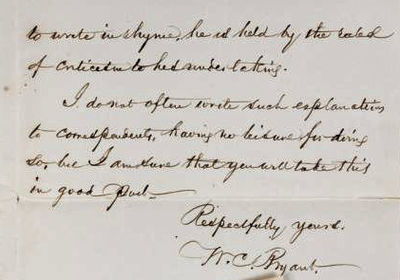 to write in rhyme, he is held by the rules
of criticism to his undertaking.
I do not often write such explanations
to correspondents, having no leisure for doing
so, but I am sure that you will take this
in good part—
Respectfully yours.
W. C. Bryant.